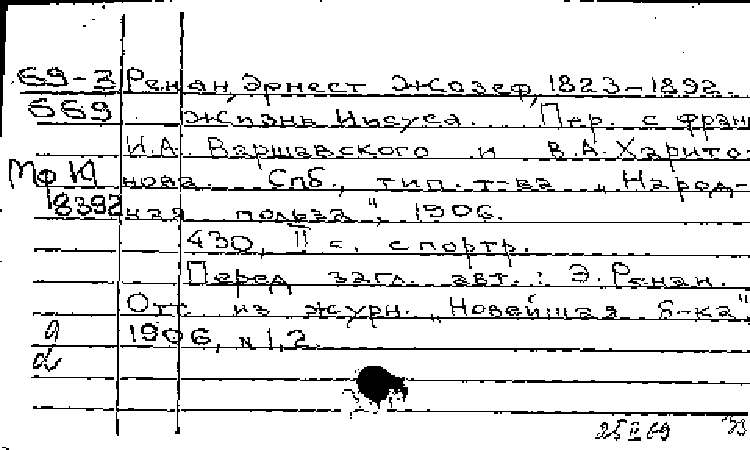 69-3 Ренан, Эрнест Жозеф, 1823-1892.
669 Жизнь Иисуса. Пер. с фран
И.А. Варшавского и В.А. Харито-
Мф нова. Спб., тип. т-ва „Народ-
18392 ная польза", 1906.
430, II с. с портр.
Перед загл. авт.: Э. Ренан.
Отт из журн. „Новейшая б-ка"
1906, N 1, 2.
25 II 69